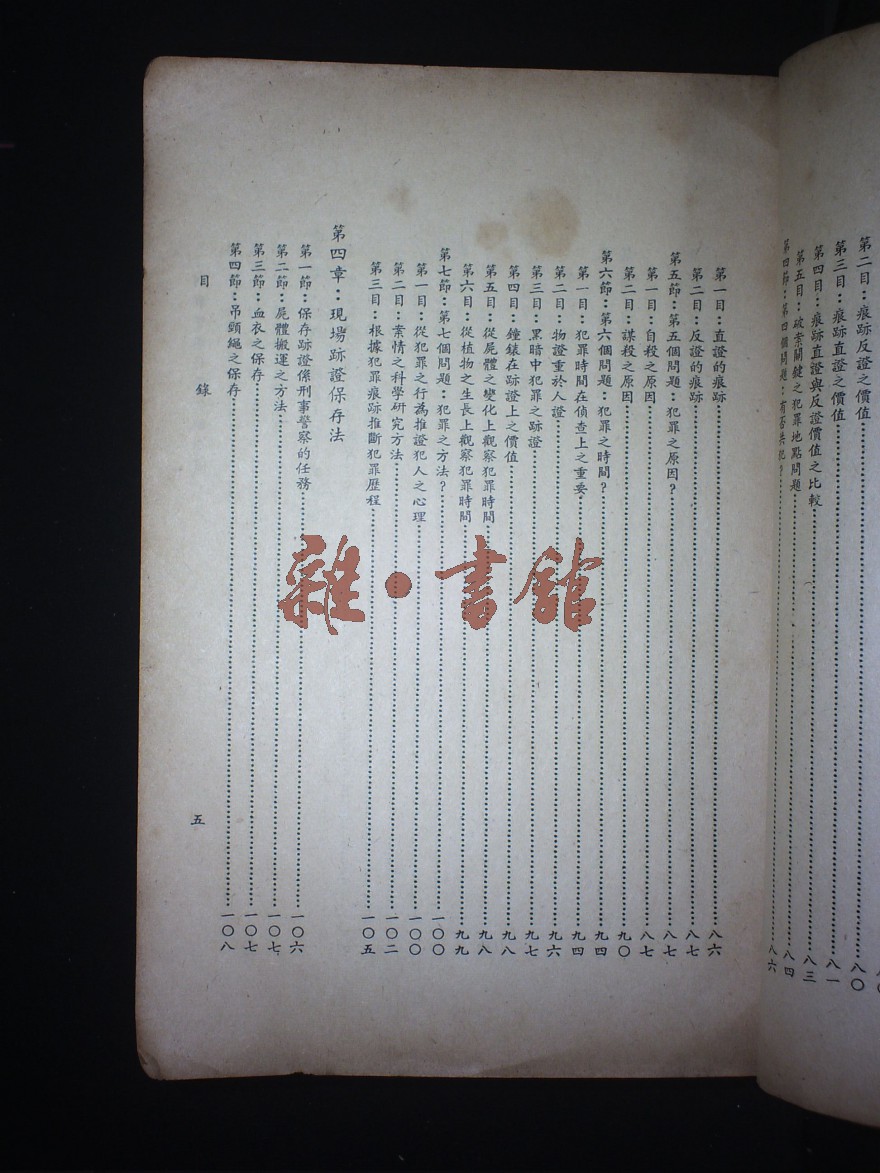 第二目：痕跡反證之價值……八〇
第三目：痕跡直證之價值……八一
第四目：痕跡直證與反證價值之比較……八三
第五目：破案關鍵之犯罪地點問題……八四
第四節：第四個問題：有否共犯？……八六
第一目：直證的痕跡……八六
第二目：反證的痕跡……八七
第五節：第五個問題：犯罪之原因？……八七
第一目：自殺之原因……八七
第二目：謀殺之原因……九〇
第六節：第六個問題：犯罪之時間？……九四
第一目：犯罪時間在偵查上之重要……九四
第二目：物證重於人證……九六
第三目：黑暗中犯罪之跡證……九七
第四目：鐘錶在跡證上之價值……九八
第五目：從屍體之變化上觀察犯罪時間……九八
第六目：從植物之生長上觀察犯罪時間……九九
第七節：第七個問題：犯罪之方法？……一〇〇
第一目：從犯罪之行為推證犯人之心理……一〇〇
第二目：案情之科學研究方法……一〇二
第三目：根據犯罪痕跡推斷犯罪歷程……一〇五
第四章：現場跡證保存法
第一節：保存跡證係刑事警察的任務……一〇六
第二節：屍體搬運之方法……一〇七
第三節：血衣之保存……一〇七
第四節：吊頸繩之保存……一〇八
目錄
五
雜·書館